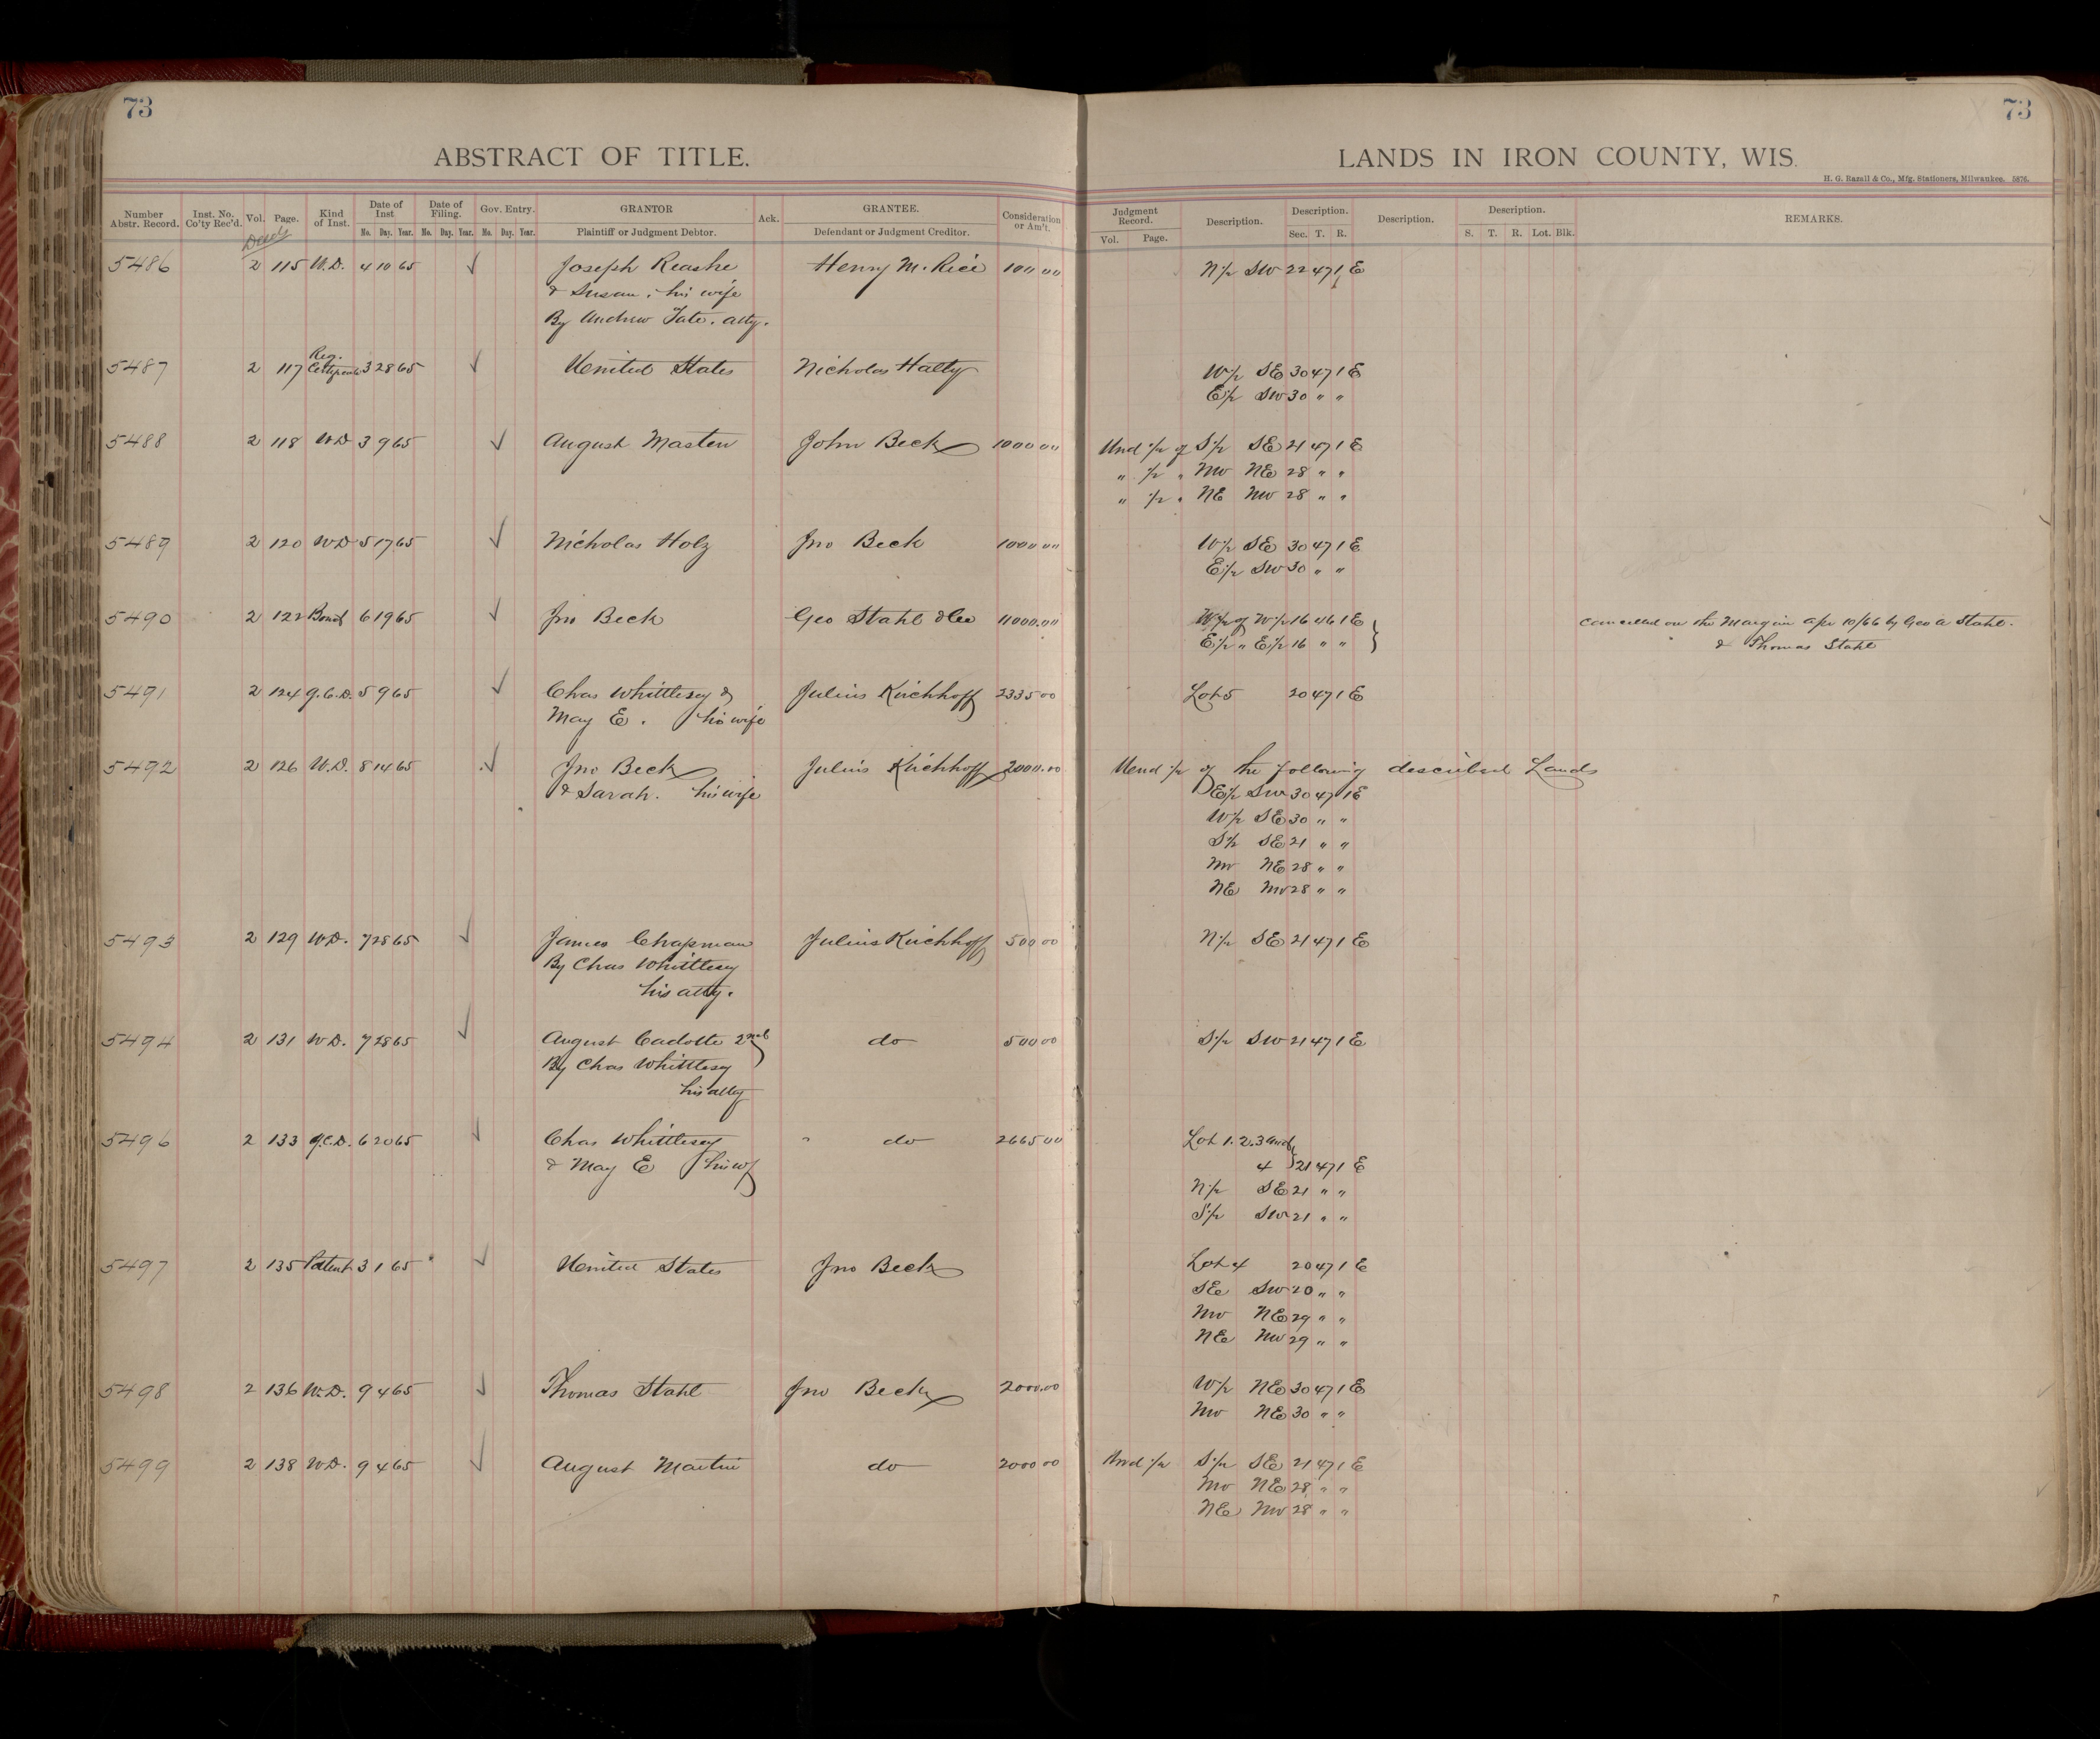 73
73
ABSTRACT OF TITLE.
LANDS IN IRON COUNTY, WIS.
H. G. Razall & Co., Mfg. Stationers, Milwaukee. 5876.
Number Abstr. Record. Inst. No. Co'ty Rec'd. Vol. Page. Kind of Inst. Date of Inst Date of Filing. Gov. Entry. GRANTOR Ack. GRANTEE. Consideration or Am't. Judgment Record. Description. Description. Description. Description. REMARKS.
Mo. Day. Year. Mo. Day. Year. Mo. Day. Year. Plaintiff or Judgment Debtor. Defendant or Judgment Creditor. Vol. Page. Sec. T. R. S. T. R. Lot. Blk.
Deeds
5486 2 115 W.D. 4 10 65 ✓ Joseph Henry M. Rice 100 00 N 1/2 SW 22 47 1 E
& Susan, his wife
By Andrew Tate. atty.
5487 2 117 Reg. Certificate 3 28 65 ✓ United States Nicholas W 1/2 SE 30 47 1 E
E 1/2 SW 30 " "
5488 2 118 W D 3 9 65 ✓ August Masten John Beck 1000 00 Und 1/2 of S 1/2 SE 21 47 1 E
" 1/2 " NW NE 28 " "
" 1/2 " NE NW 28 " "
5489 2 120 W D 5 17 65 ✓ Nicholas Holz Jno Beck 1000 00 W 1/2 SE 30 47 1 E
E 1/2 SW 30 " "
5490 2 122 Bond 6 19 65 ✓ Jno Beck Geo Stahl & Co 11000.00 W 1/2 of W 1/2 16 46 1 E
E 1/2 " E 1/2 16 " "
Cancelled on the Margin Apr 10/66 by Geo A Stahl.
& Thomas Stahl
5491 2 124 Q.C.D. 5 9 65 ✓ Chas Whittlesey & Julius Kirchhoff 2335 00 Lot 5 20 47 1 E
May E. his wife
5492 2 126 W.D. 8 14 65 ✓ Jno Beck Julius Kirchhoff 2000.00 Und 1/2 of the following described Lands
& Sarah. his wife E 1/2 SW 30 47 1 E
W 1/2 SE 30 " "
S 1/2 SE 21 " "
NW NE 28 " "
NE NW 28 " "
5493 2 129 W.D. 7 28 65 ✓ James Chapman Julius Kirchhoff 500 00 N 1/2 SE 21 47 1 E
By Chas Whittlesey
his atty.
5494 2 131 W.D. 7 28 65 ✓ August Cadotte 2nd do 500 00 S 1/2 SW 21 47 1 E
By Chas Whittlesey
his atty
5496 2 133 Q.C.D. 6 20 65 ✓ Chas Whittlesey do 2665 00 Lot 1. 2. 3 and
& May E his wf 4 21 47 1 E
N 1/2 SE 21 " "
S 1/2 SW 21 " "
5497 2 135 Patent 3 1 65 ✓ United States Jno Beck Lot 4 20 47 1 E
SE SW 20 " "
NW NE 29 " "
NE NW 29 " "
5498 2 136 W.D. 9 4 65 ✓ Thomas Stahl Jno Beck 2000.00 W 1/2 NE 30 47 1 E
NW NE 30 " "
5499 2 138 W.D. 9 4 65 ✓ August Martin do 2000 00 Und 1/2 S 1/2 SE 21 47 1 E
NW NE 28 " "
NE NW 28 " "